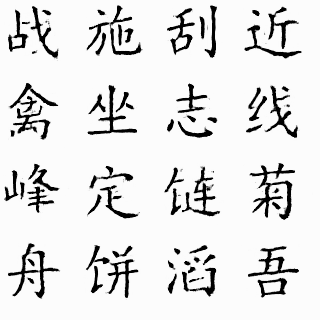 战施刮近
禽坐志线
峰定链菊
舟饼滔吾